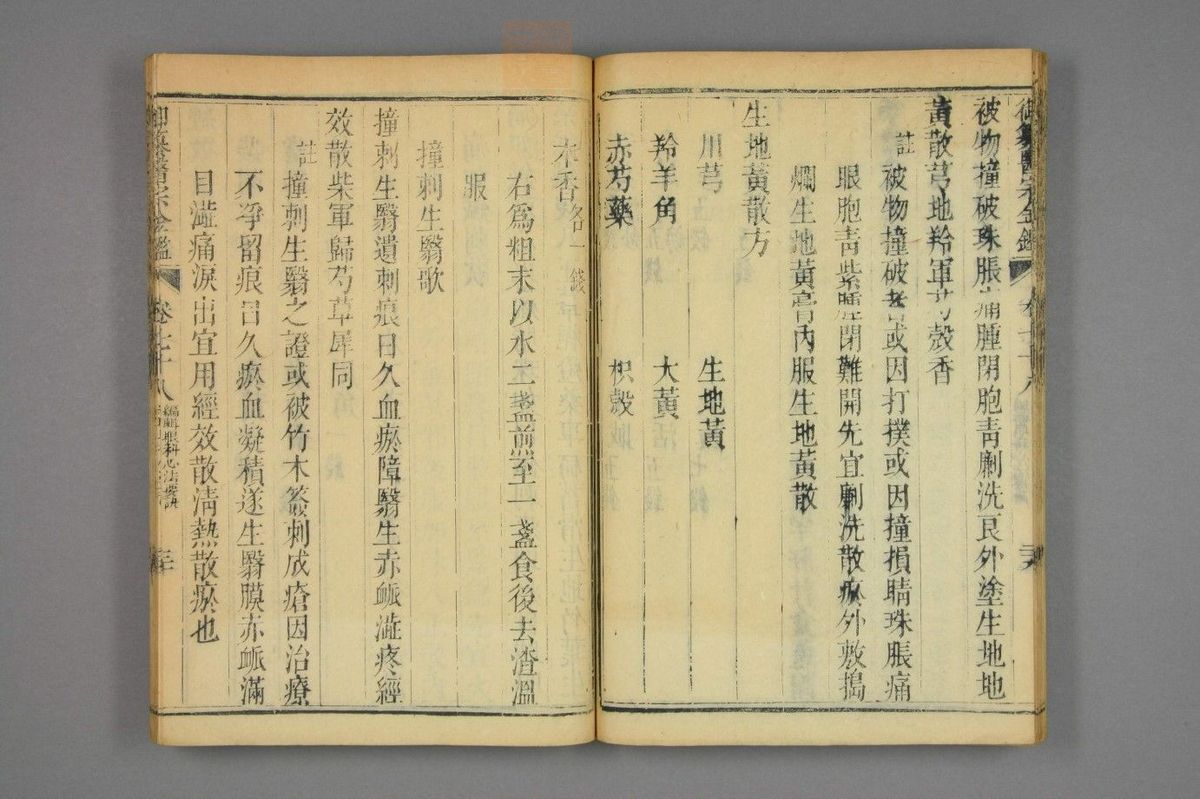 御纂醫宗金鑑 卷七十八
被物撞破珠脹痛腫閉胞青㓸洗良外塗生地地
黃散芎地羚軍芍殼香
註被物撞破者或因打撲或因撞損睛珠脹痛
眼胞青紫腫閉難開先宜㓸洗散瘀外敷搗
爛生地黃膏內服生地黃散
生地黃散方
川芎 生地黃
羚羊角 大黃
赤芍藥 枳殼
木香各一錢
右為粗末以水二盞煎至一盞食後去渣溫
服
撞刺生翳歌
撞刺生翳遺刺痕日久血瘀障翳生赤衇澁疼經
效散柴軍歸芍草犀同
註撞刺生翳之證或被竹木簽刺成瘡因治療
不淨留痕日久瘀血凝積遂生翳膜赤衇滿
目澁痛淚出宜用經效散清熱散瘀也
御纂醫宗金鑑 卷七十八 編輯眼科心法要訣